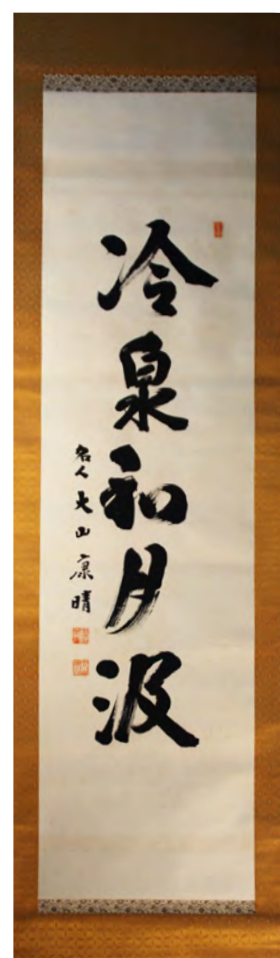 冷泉和月汲
名人大山康晴